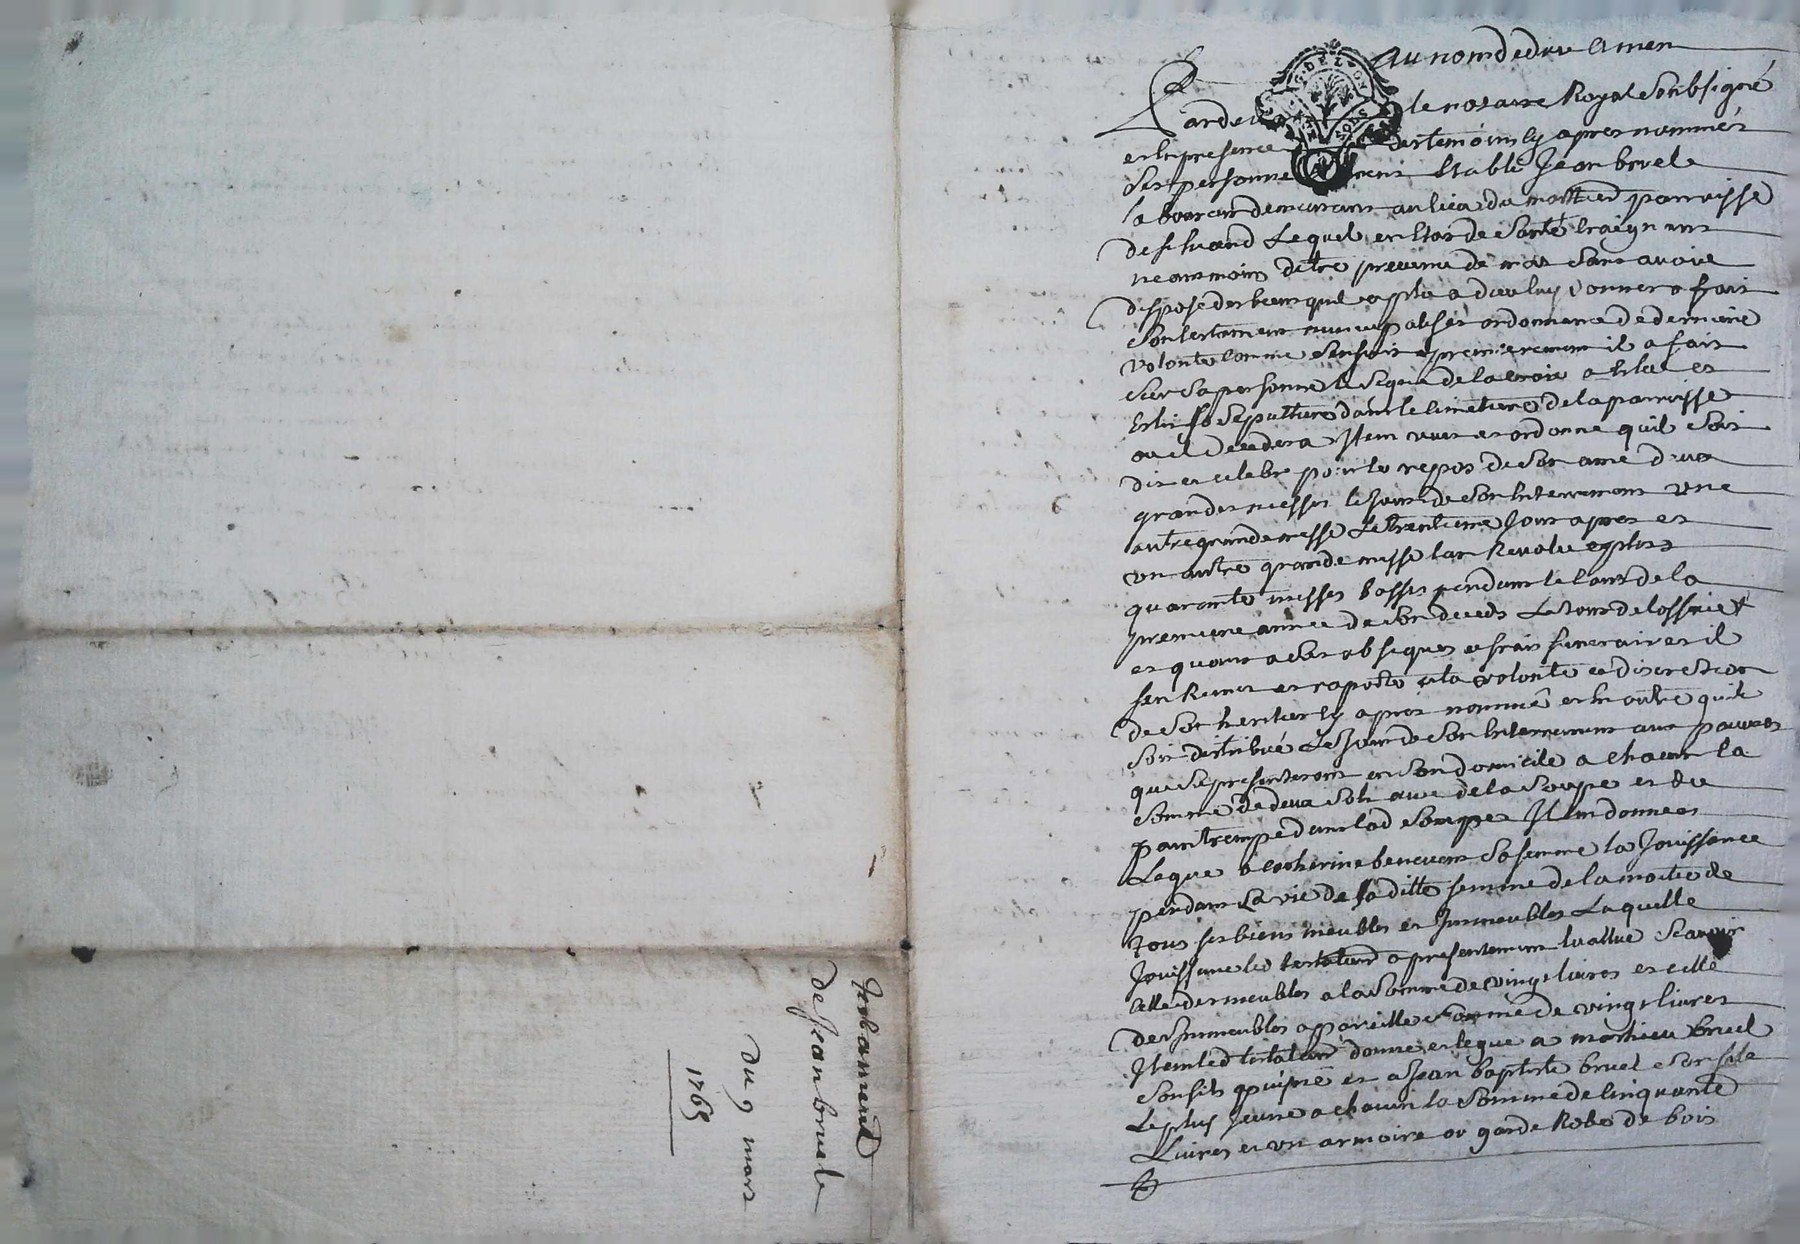 Au nom de dieu Amen
Pardevant le notaire Royal Soubsigné
et en presence des temoins cy apres nommés
Sest personnellement Etably Jean bruel
laboureur demeurant au lieu du paroisse
de Lequel en Etat de Santé Craignant
neantmoins detre prevenu de mort Sans avoir
disposé des biens quil a plu a dieu luy donner a fait
Son testament nuncupatif et ordonnance de derniere
volonté comme Sensuit premierement il a fait
Sur Sa personne le Signe de la croix a Elu et
Elit Sa Sepulture dans le Cimetiere de la parroisse
ou il decedera Item veut et ordonne quil Soit
dit et celebré pour le repos de Son ame deux
grandes messes le Jour de Son Enterrement une
autre grande messe Le trentieme Jour apres et
un autre grande messe lan Revolu et plus
quarante messes basses pendant le Cours de la
premiere année de Son deceds
et quant a Ses obseques et frais funeraires il
Sen Remet et raporte a la volonté et discretion
de Son heritier cy apres nommé et En outre quil
Soit distribué Le Jour de Son Enterrement aux pauvres
qui Se presenteront en Son domicile a chacun la
Somme de deux Sols avec de la Soupe et du
pain trempé dans lad Soupe Item donne et
Legue a catherine Sa femme la Jouissance
pendant La vie de Sa ditte femme de la moitié de
tous ses biens meubles et Immeubles Laquelle
Jouissance led testateur a presentement Evalluë Scavoir
Celle des meubles a la Somme de vingt livres et celle
des Immeubles a pareille Somme de vingt livres
Item led testateur donne et legue a mathieu bruel
Son fils puisné et a Jean baptiste bruel Son fils
Le plus Jeune a chacun la Somme de Cinquante
Livres et un armoire ou garde Robe de bois
Testament
de Jean bruel
du 9 mars
1765